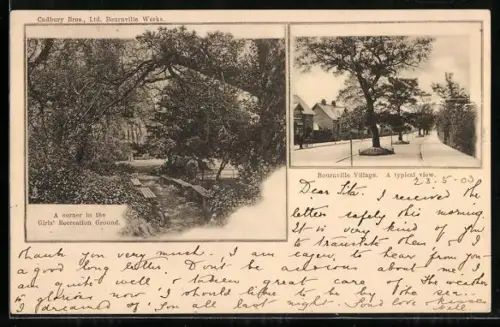 Cadbury Bros., Ltd. Bournville Works.
A corner in the
Girls' Recreation Ground.
Bournville Village. A typical view.
23.5.03
Dear Ita. I received the
letter safely this morning.
It is very kind of you
to translate them for I
thank you very much. I am eager to hear from you
a good long letter. Dont be anxious about me, I
am quite well, & taken great care of. The weather
is glorious now, I should like to be by the sea.
I dreamed of you all last night. Fond love & kisses
Nell